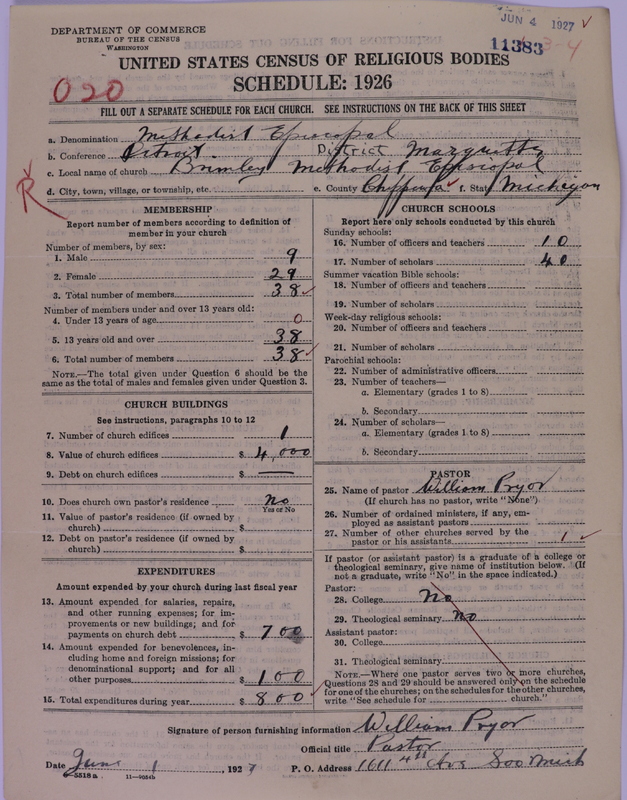 DEPARTMENT OF COMMERCE
BUREAU OF THE CENSUS
WASHINGTON
JUN 4 1927
11383
3-4
UNITED STATES CENSUS OF RELIGIOUS BODIES
SCHEDULE: 1926
020
FILL OUT A SEPARATE SCHEDULE FOR EACH CHURCH. SEE INSTRUCTIONS ON THE BACK OF THIS SHEET
a. Denomination Methodist Episcopal
b. Conference Detroit District Marquette
c. Local name of church Brimley Methodist Episcopal
d. City, town, village, or township, etc. e. County Chippewa f. State Michigan
R
MEMBERSHIP
Report number of members according to definition of member in your church
Number of members, by sex:
1. Male 9
2. Female 29
3. Total number of members 38
Number of members under and over 13 years old:
4. Under 13 years of age 0
5. 13 years old and over 38
6. Total number of members 38
NOTE.—The total given under Question 6 should be the same as the total of males and females given under Question 3.
CHURCH BUILDINGS
See instructions, paragraphs 10 to 12
7. Number of church edifices 1
8. Value of church edifices $ 4,000
9. Debt on church edifices $ —
10. Does church own pastor's residence No
Yes or No
11. Value of pastor's residence (if owned by church) $
12. Debt on pastor's residence (if owned by church) $
EXPENDITURES
Amount expended by your church during last fiscal year
13. Amount expended for salaries, repairs, and other running expenses; for improvements or new buildings; and for payments on church debt $ 700
14. Amount expended for benevolences, including home and foreign missions; for denominational support; and for all other purposes $ 100
15. Total expenditures during year $ 800
CHURCH SCHOOLS
Report here only schools conducted by this church
Sunday schools:
16. Number of officers and teachers 10
17. Number of scholars 40
Summer vacation Bible schools:
18. Number of officers and teachers
19. Number of scholars
Week-day religious schools:
20. Number of officers and teachers
21. Number of scholars
Parochial schools:
22. Number of administrative officers
23. Number of teachers—
a. Elementary (grades 1 to 8)
b. Secondary
24. Number of scholars—
a. Elementary (grades 1 to 8)
b. Secondary
PASTOR
25. Name of pastor William Pryor
(If church has no pastor, write "None")
26. Number of ordained ministers, if any, employed as assistant pastors
27. Number of other churches served by the pastor or his assistants 1
If pastor (or assistant pastor) is a graduate of a college or theological seminary, give name of institution below. (If not a graduate, write "No" in the space indicated.)
Pastor:
28. College No
29. Theological seminary No
Assistant pastor:
30. College
31. Theological seminary
NOTE.—Where one pastor serves two or more churches, Questions 28 and 29 should be answered only on the schedule for one of the churches; on the schedules for the other churches, write "See schedule for church."
Signature of person furnishing information William Pryor
Official title Pastor
Date June 1, 1927 P. O. Address 1611 4th Ave Soo Mich
8—5518a 11—9054b